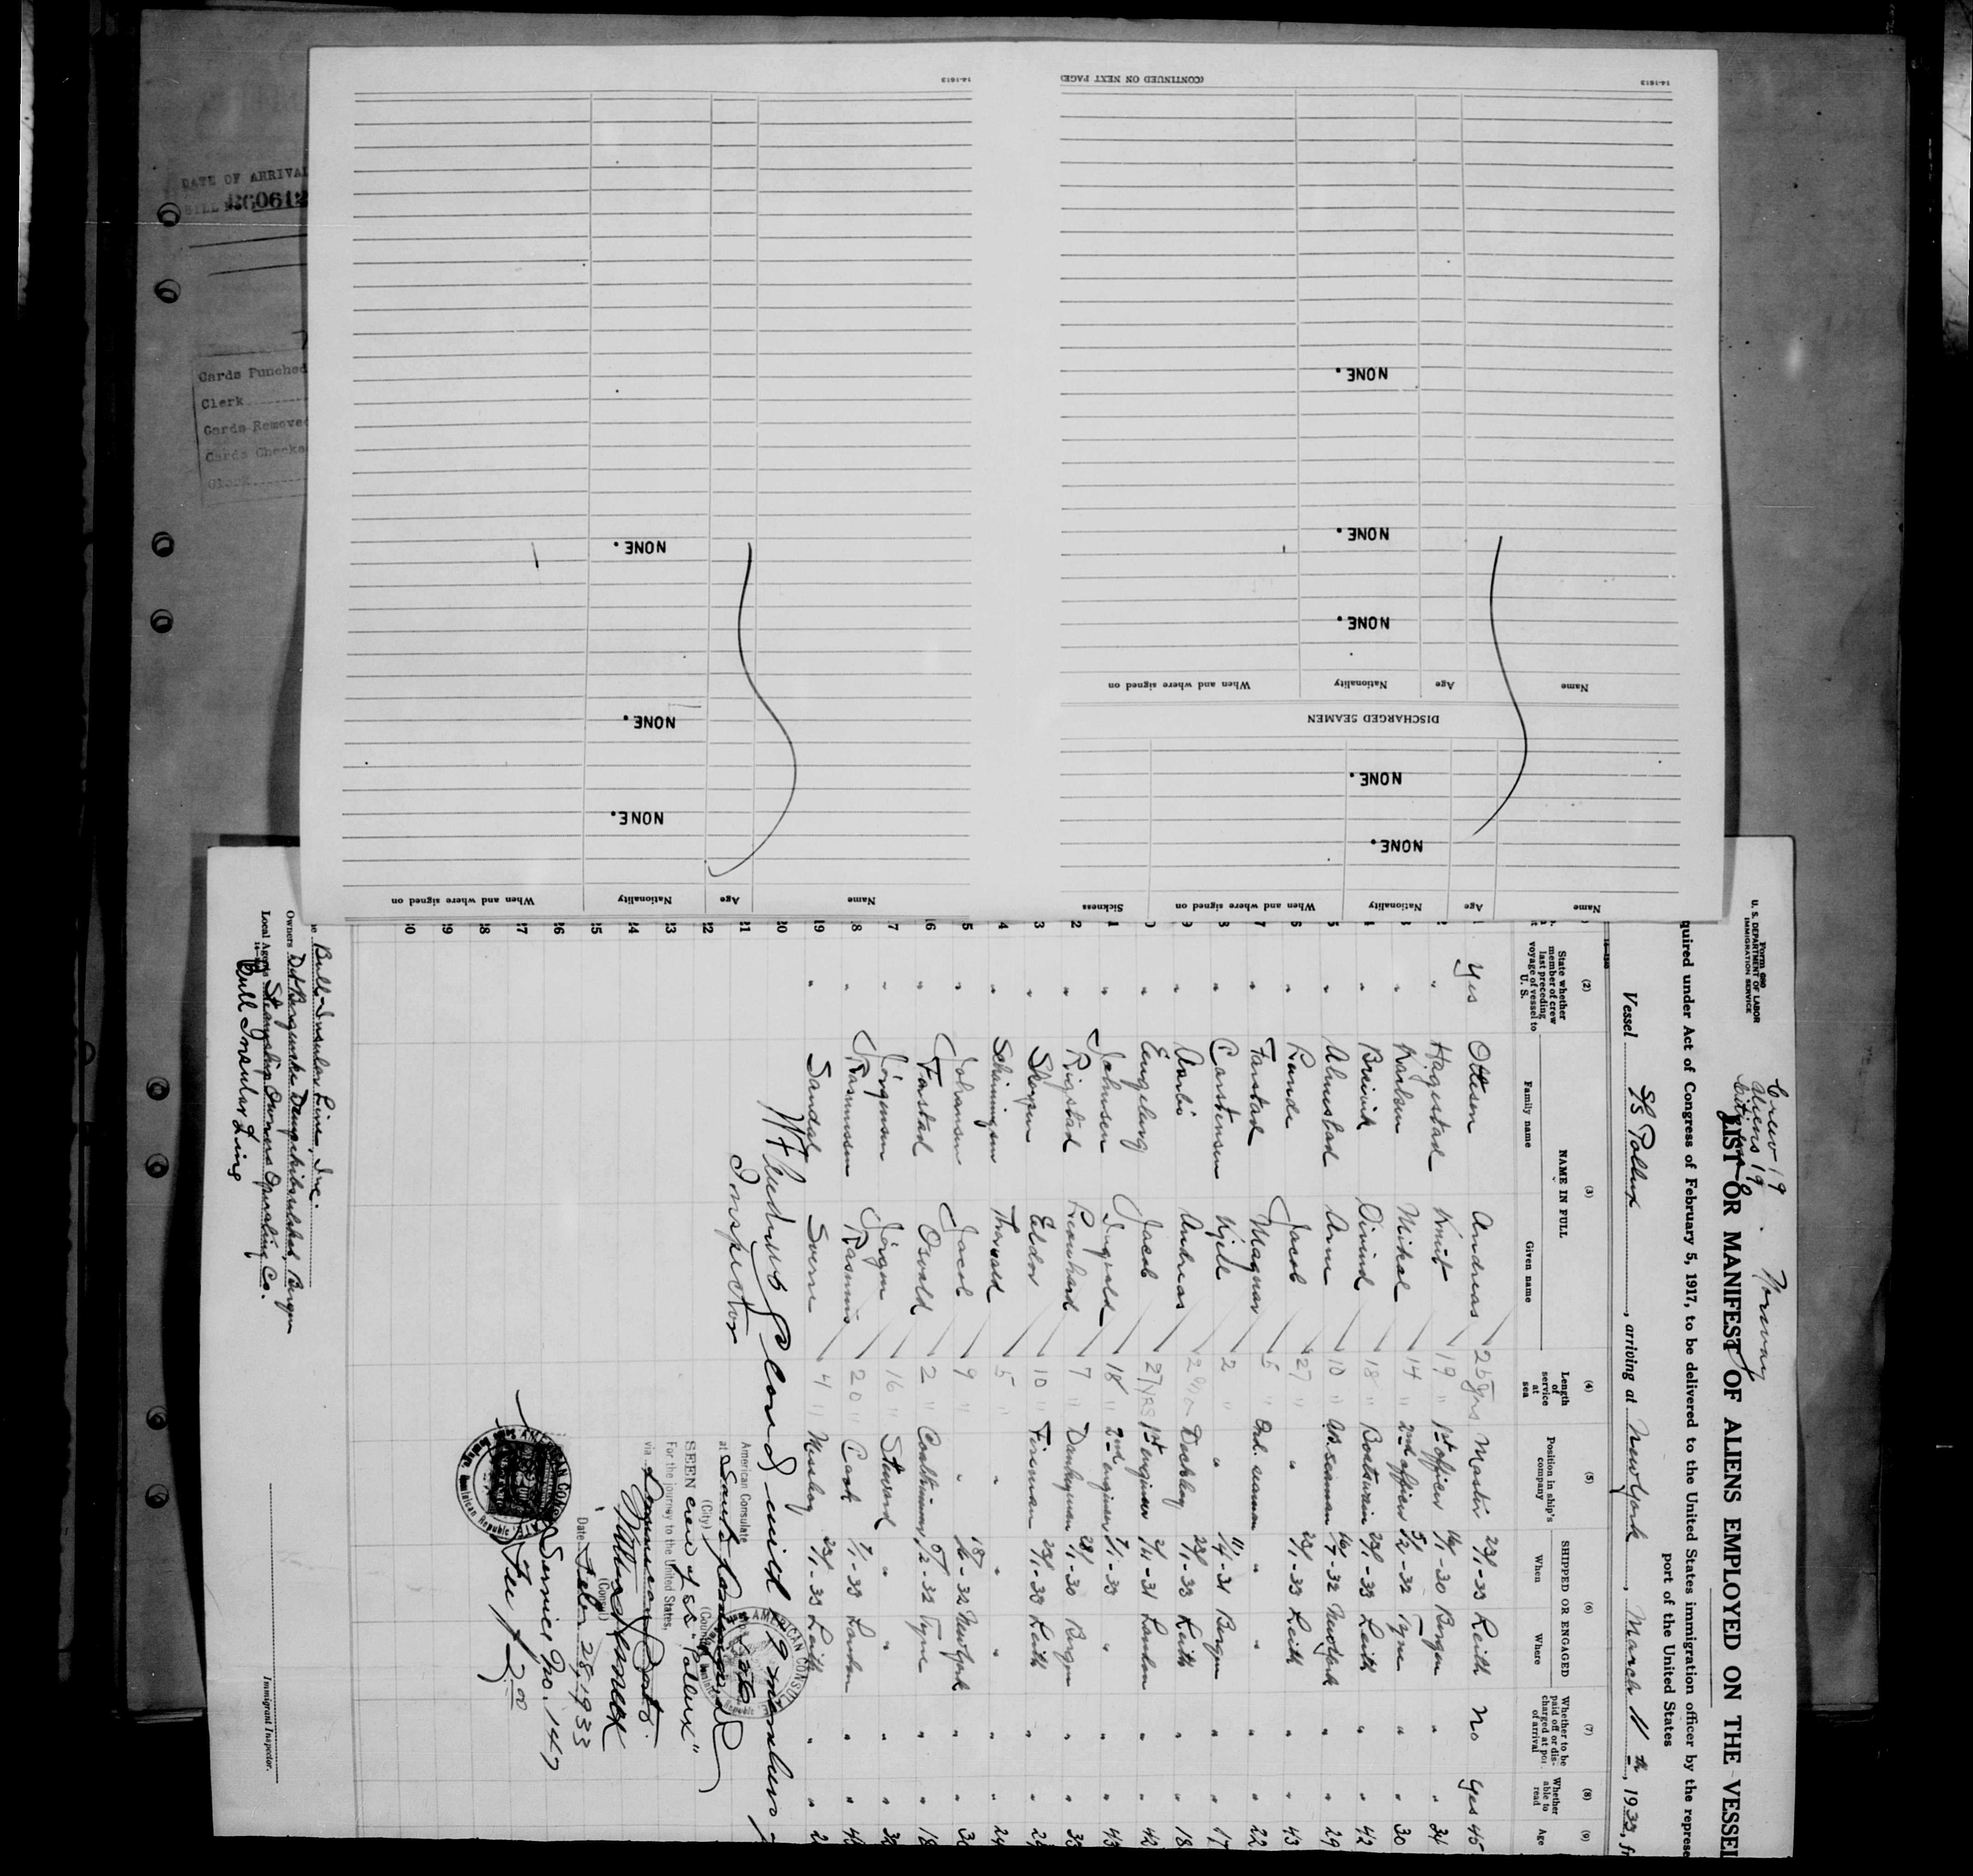 DATE OF ARRIVAL
Cards Punched
Clerk
Cards Removed
Clerk
14-1613
NONE.
NONE.
NONE.
Name
Age
Nationality
When and where signed on
14-1613
(CONTINUED ON NEXT PAGE)
NONE.
NONE.
NONE.
Name
Age
Nationality
When and where signed on
DISCHARGED SEAMEN
NONE.
NONE.
Name
Age
Nationality
When and where signed on
Sickness
Form 680
U. S. DEPARTMENT OF LABOR
IMMIGRATION SERVICE
Crew 19
Aliens 19
Norway
LIST OR MANIFEST OF ALIENS EMPLOYED ON THE VESSEL
quired under Act of Congress of February 5, 1917, to be delivered to the United States immigration officer by the represe
port of the United States
Vessel S/S Pollux, arriving at New York, March 11th, 1933, fr
(2) (3) (4) (5) (6) (7) (8) (9)
State whether member of crew last preceding voyage of vessel to U. S.
NAME IN FULL
Family name
Given name
Length of service at sea
Position in ship's company
SHIPPED OR ENGAGED
When
Where
Whether to be paid off or discharged at port of arrival
Whether able to read
Age
Yes Ottesen Andreas 25 yrs Master 23/1-33 Leith No Yes 45
2 " Hagestad Knut 19 " 1st officer 14/1-30 Bergen " " 34
3 " Karlsen Mikal 14 " 2nd officer 5/2-32 Tyne " " 30
4 " Breivik Oivind 18 " Boatswain 23/1-33 Leith " " 42
5 " Almestad Arne 10 " AB. seaman New York " " 29
6 " Runde Jacob 27 " " 23/1-33 Leith " " 43
7 " Farstad Magnar 5 " Ord. seaman " " " " 22
8 " Carstensen Kjell 2 " " 11/4-31 Bergen " " 17
9 " Aarbö Andreas Deckboy 23/1-33 Leith " " 18
0 " Engelung Jacob 27 yrs 1st engineer 2/4-31 London " " 42
1 " Johnsen Ingvald 18 " 2nd engineer 7/1-33 " " " 43
2 " Rigstad Leonhard 7 " Donkeyman 28/1-30 Bergen " " 33
3 " Eldor 10 " Fireman 23/1-33 Leith " "
4 " Thorvald 5 " " " " " " 24
5 " Johansen Jacob 9 " " 18/6-32 New York " "
16 " Farstad Osvald 2 " Coaltrimmer 5/2-32 Tyne " " 18
17 " Jörgensen Jörgen 16 " Steward " " " "
18 " Rasmussen Rasmus 20 " Cook 7/1-33 London " "
19 " Sandal Sverre 4 " Messboy 23/1-33 Leith " "
20
21
22
23
24
25
26
27
28
29
30
closed with 19 members
Inspector
American Consulate
at Santo Domingo
(City)
(Country)
SEEN crew of s.s. "Pollux"
For the journey to the United States,
via
(Consul)
Date Feb. 28, 1933
Service No. 147
Fee $ 2.00
AMERICAN CONSULATE
Bull-Insular Line, Inc.
Owners Det Bergenske Dampskibsselskab, Bergen
Local Agents Steamship Owners Operating Co.
Bull Insular Line
Immigrant Inspector.